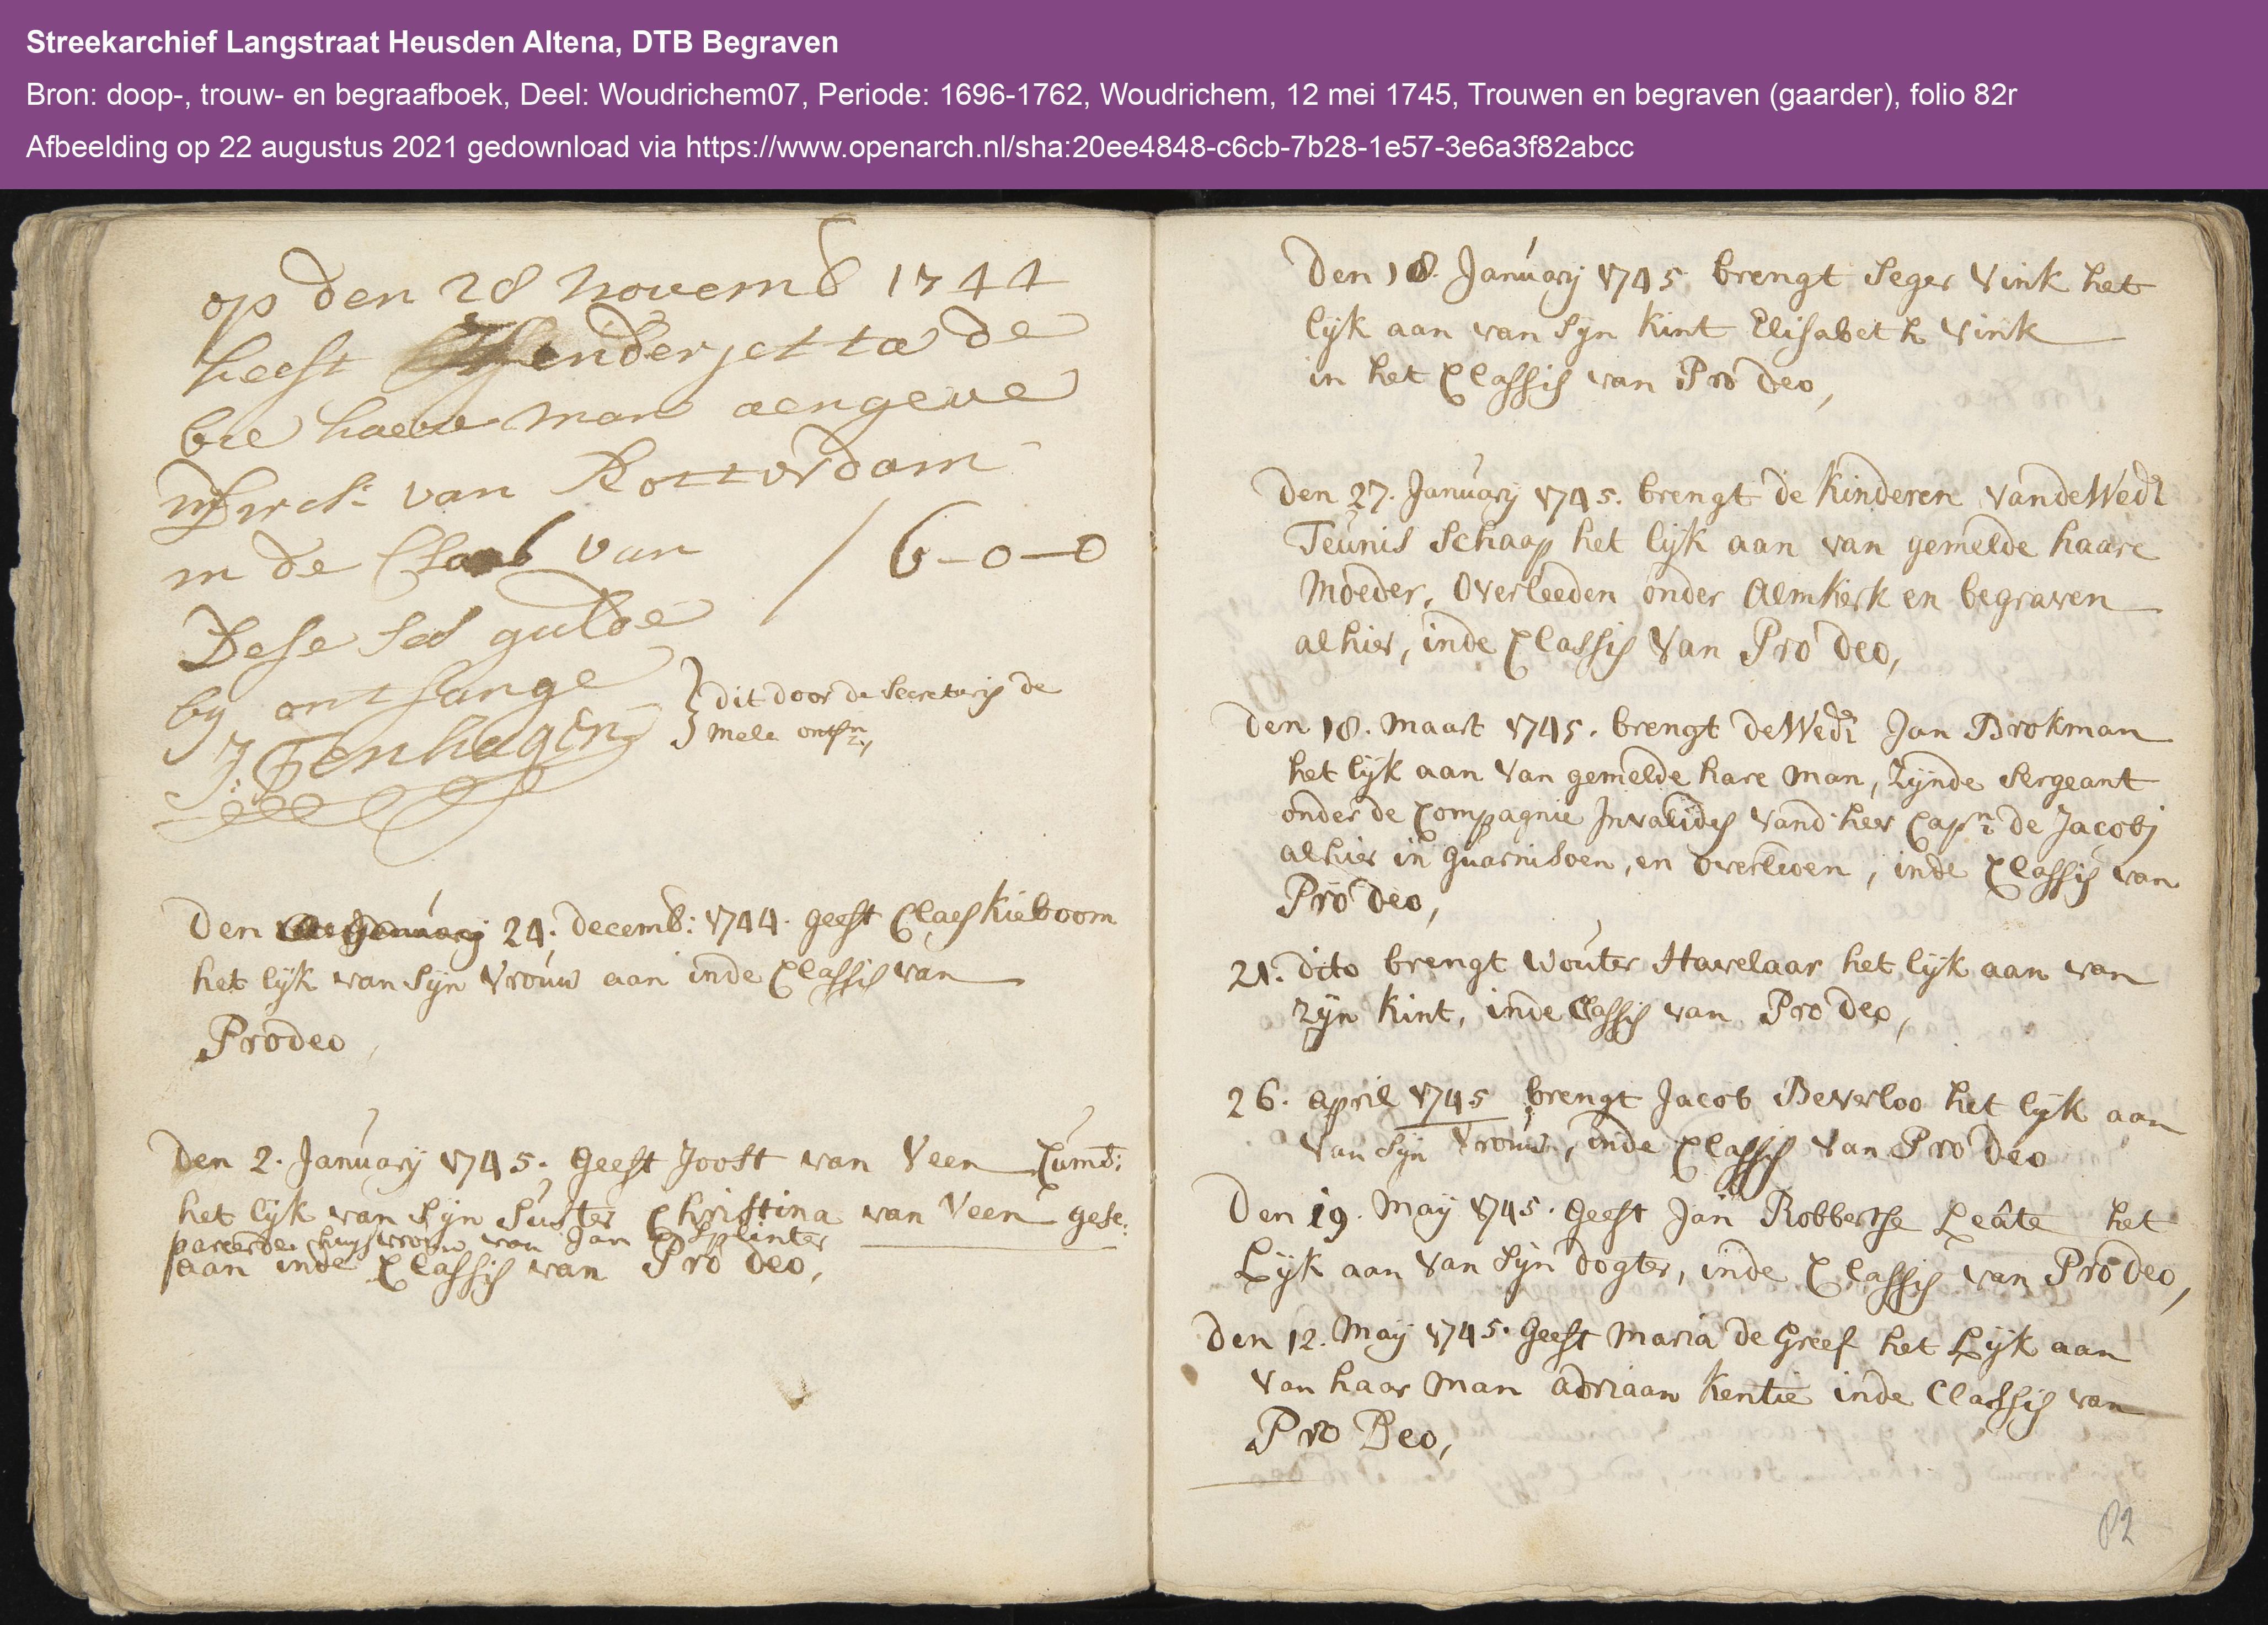 Streekarchief Langstraat Heusden Altena, DTB Begraven
Bron: doop-, trouw- en begraafboek, Deel: Woudrichem07, Periode: 1696-1762, Woudrichem, 12 mei 1745, Trouwen en begraven (gaarder), folio 82r
Afbeelding op 22 augustus 2021 gedownload via https://www.openarch.nl/sha:20ee4848-c6cb-7b28-1e57-3e6a3f82abcc
op den 28 novemb 1744
heeft Henderjetta de
bre haere man aengeve
van Rotterdam
in de Clas van / 6-0-0
Dese ses gulde
by ontfange
J: Tenhagen
} dit door de Secretaris de
Mele ontfn:,
Den 24. decemb: 1744. geeft Claes Kieboom
het lijk van Sijn Vrouw aan inde Classis van
Prodeo,
Den 2. January 1745. geeft Joost van Veen
het lijk van Sijn Suster Christina van Veen gese:
pareerde huysvrouw van Jan Splinter
aan inde Classis van Pro deo,
Den 18. January 1745 brengt Seger Vink het
lijk aan van Sijn kint Elisabeth Vink
in het Classis van Pro deo,
Den 27. January 1745. brengt de Kinderen van de Wede
Teunis Schaap het lijk aan van gemelde haare
Moeder, Overleeden onder Almkerk en begraven
alhier, inde Classis Van Pro deo,
Den 18. Maart 1745. brengt de Wede Jan Brokman
het lijk aan Van gemelde hare man, Zijnde Sergeant
onder de Compagnie Invalides vand heer Capn de Jacobj
alhier in guarnisoen, en overleden, inde Classis van
Pro deo,
21. dito brengt Wouter Havelaar het lijk aan van
zijn kint, inde Classis van Pro deo,
26. april 1745 brengt Jacob Beverloo het lijk aan
Van Sijn Vrouw, inde Classis Van Pro deo
Den 19. May 1745. geeft Jan Robbertse Leâte het
Lijk aan Van Sijn dogter, inde Classis van Pro deo,
Den 12. May 1745. geeft Maria de Greef het Lijk aan
Van haar Man Adriaan Kentie inde Classis van
Pro Deo,
82